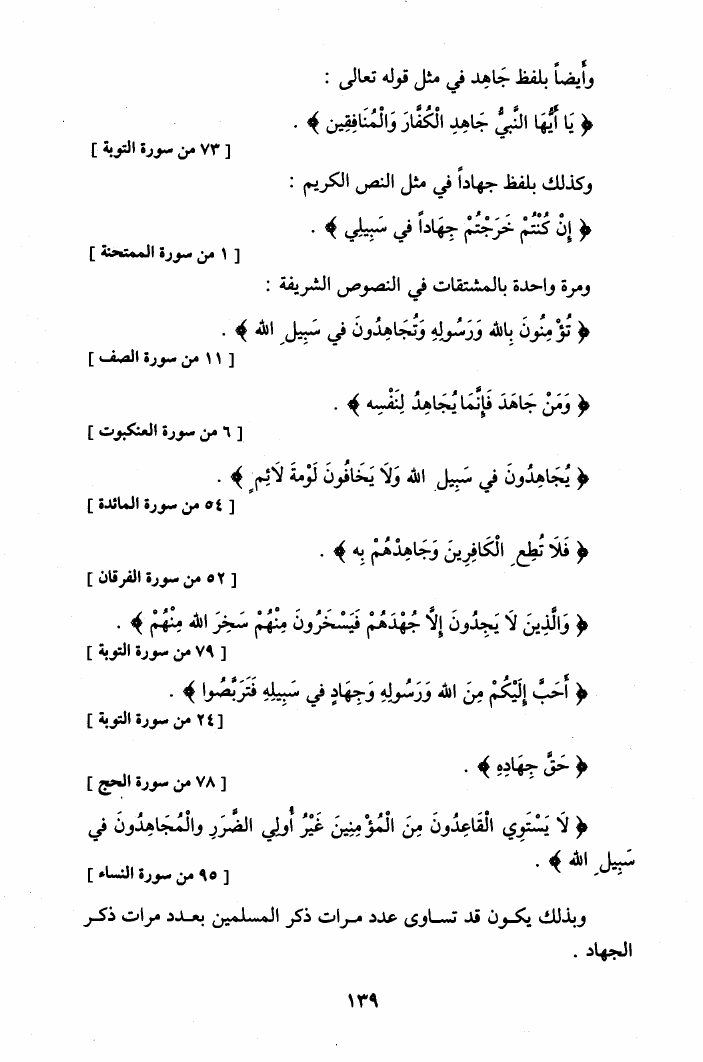 وأَيضاً بلفظ جَاهِد في مثل قوله تعالى :
﴿ يَا أَيُّهَا النَّبِيُّ جَاهِدِ الْكُفَّارَ وَالْمُنَافِقِين ﴾ .
[ ٧٣ من سورة التوبة ]
وكذلك بلفظ جهاداً في مثل النص الكريم :
﴿ إِنْ كُنْتُمْ خَرَجْتُمْ جِهَاداً في سَبِيلِي ﴾ .
[ ١ من سورة الممتحنة ]
ومرة واحدة بالمشتقات في النصوص الشريفة :
﴿ تُؤْمِنُونَ بِالله وَرَسُولِهِ وَتُجَاهِدُونَ في سَبِيلِ الله ﴾ .
[ ١١ من سورة الصف ]
﴿ وَمَنْ جَاهَدَ فَإِنَّمَا يُجَاهِدُ لِنَفْسِه ﴾ .
[ ٦ من سورة العنكبوت ]
﴿ يُجَاهِدُونَ في سَبِيلِ الله وَلَا يَخَافُونَ لَوْمةَ لَائِمٍ ﴾ .
[ ٥٤ من سورة المائدة ]
﴿ فَلَا تُطِعِ الْكَافِرِينَ وَجَاهِدْهُمْ بِه ﴾ .
[ ٥٢ من سورة الفرقان ]
﴿ وَالَّذِينَ لَا يَجِدُونَ إِلَّا جُهْدَهُمْ فَيَسْخَرُونَ مِنْهُمْ سَخِرَ الله مِنْهُمْ ﴾ .
[ ٧٩ من سورة التوبة ]
﴿ أَحَبَّ إِلَيْكُمْ مِنَ الله وَرَسُولِهِ وَجِهَادٍ في سَبِيلِهِ فَتَرَبَّصُوا ﴾ .
[ ٢٤ من سورة التوبة ]
﴿ حَقَّ جِهَادِهِ ﴾ .
[ ٧٨ من سورة الحج ]
﴿ لَا يَسْتَوِي الْقَاعِدُونَ مِنَ الْمُؤْمِنِينَ غَيْرُ أُولِي الضَّرَرِ والْمُجَاهِدُونَ في
سَبِيلِ الله ﴾ .
[ ٩٥ من سورة النساء ]
وبذلك يكون قد تساوى عدد مرات ذكر المسلمين بعدد مرات ذكر
الجهاد .
١٣٩